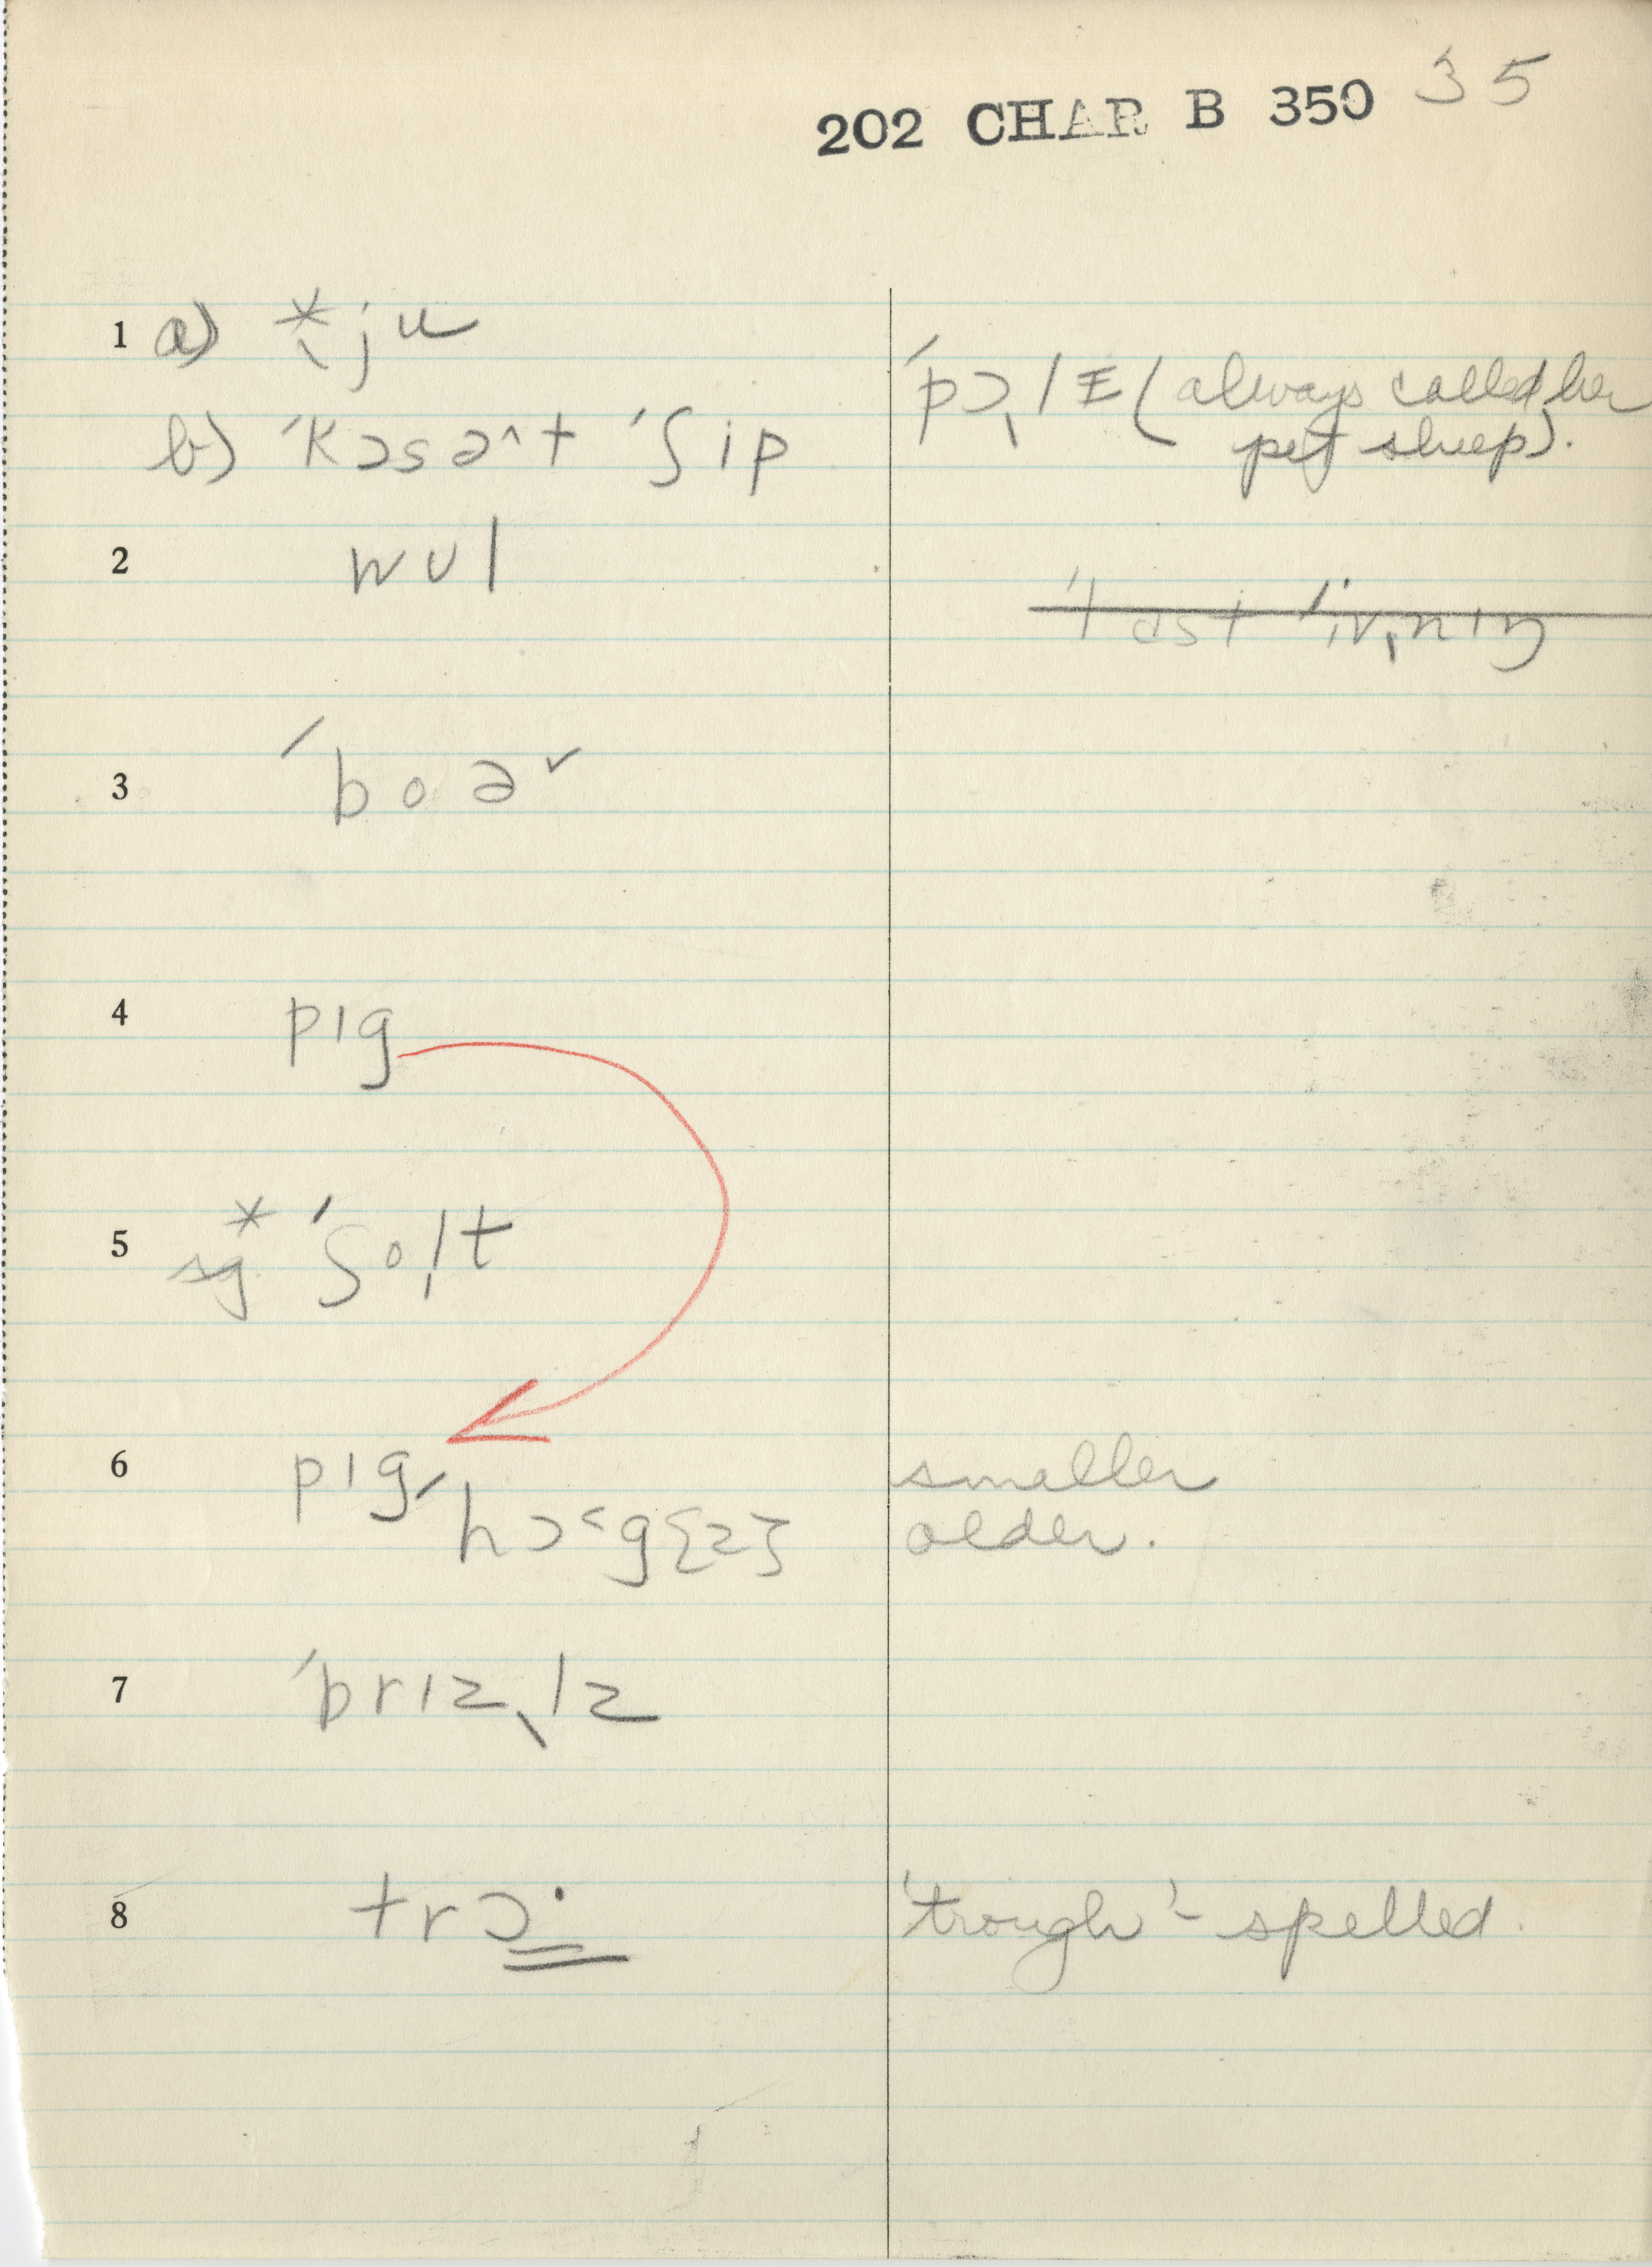 202 CHAR B 350 35
1 a) *ˎju
b) ˈkɔsəˆt ˈʃip
ˈpɔˎlɪ (always called her
pet sheep).
2 wʊl
3 ˈboəˇ
4 pɪg
5 * sg ˈʃoˌlt
6 pɪg smaller
hɔ˂g{z} older.
7 ˈbrɪzˎlz
8 trɔ· 'trough' - spelled.